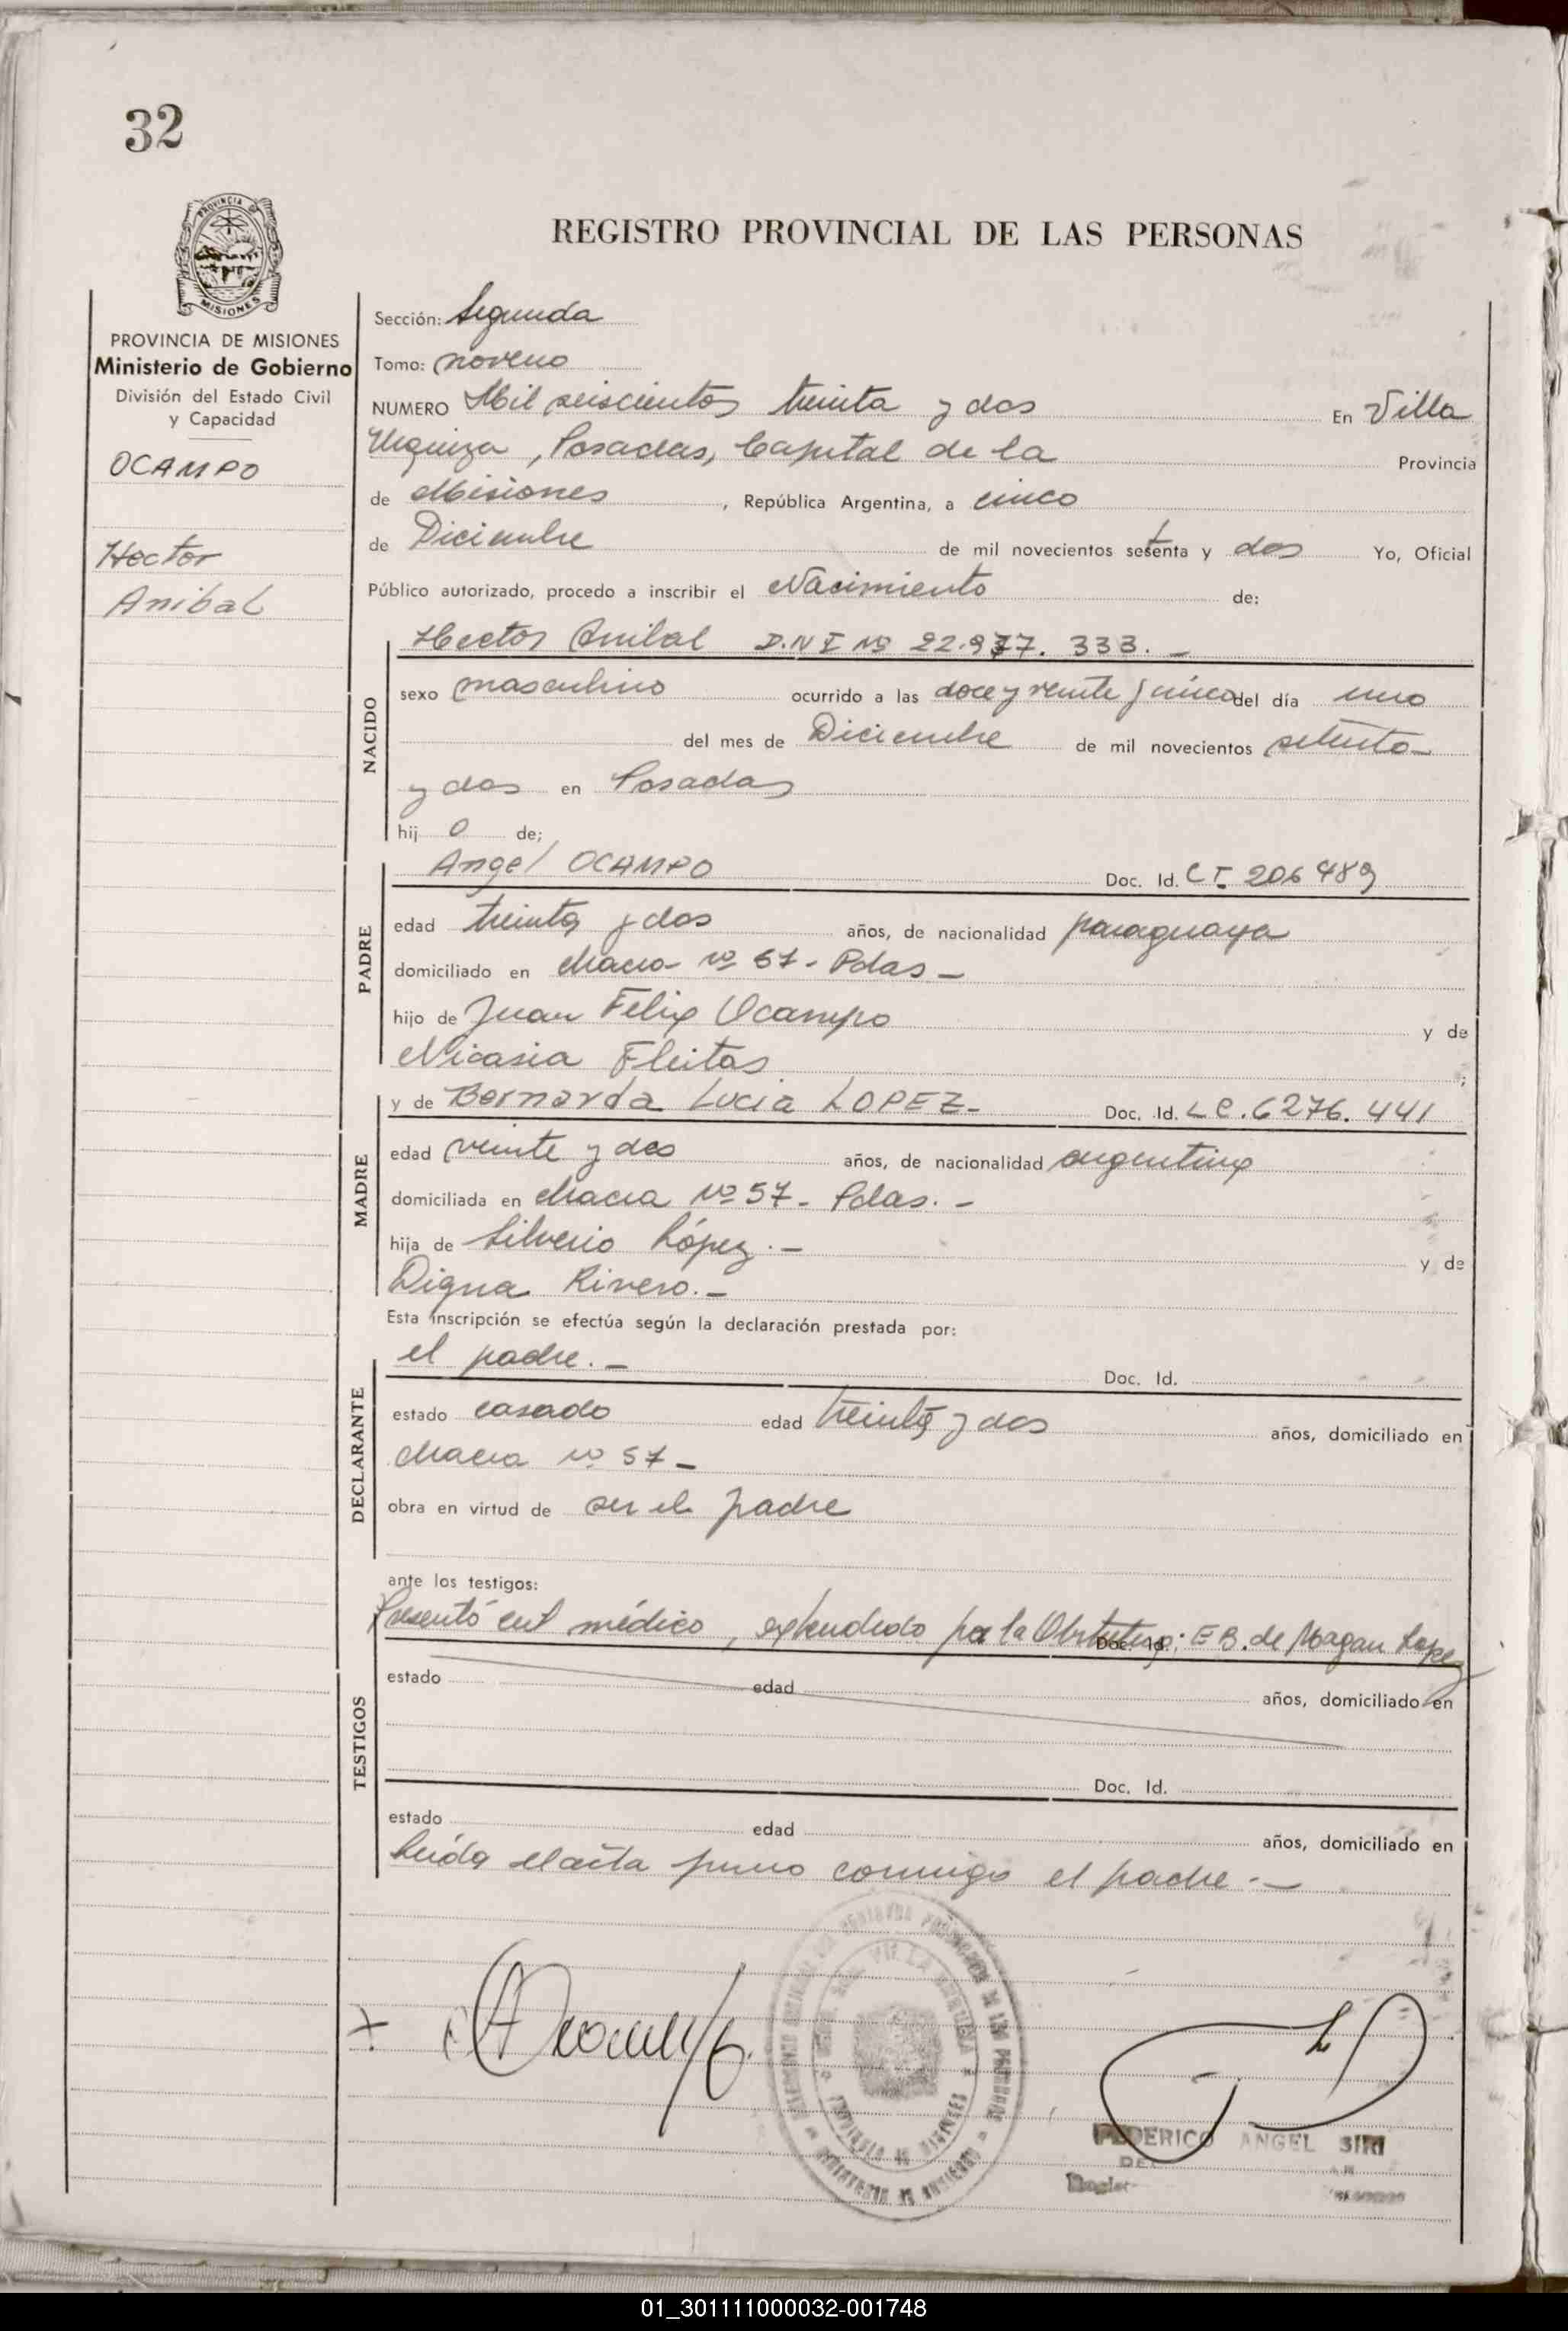 32
PROVINCIA DE
MISIONES
REGISTRO PROVINCIAL DE LAS PERSONAS
PROVINCIA DE MISIONES
Ministerio de Gobierno
División del Estado Civil
y Capacidad
OCAMPO
Hector
Anibal
Sección: Segunda
Tomo: noveno
NUMERO Mil seiscientos treinta y dos En Villa
Urquiza, Posadas, Capital de la Provincia
de Misiones, República Argentina, a cinco
de Diciembre de mil novecientos setenta y dos Yo, Oficial
Público autorizado, procedo a inscribir el Nacimiento de:
NACIDO
Hector Anibal D.N I Nº 22.937. 333. -
sexo masculino ocurrido a las doce y veinte y cinco del día uno
del mes de Diciembre de mil novecientos setenta
y dos en Posadas
hij o de;
PADRE
Angel OCAMPO Doc. Id. C I. 206489
edad treinta y dos años, de nacionalidad paraguaya
domiciliado en chacra nº 57 - Pdas -
hijo de Juan Felix Ocampo y de
Nicasia Fleitas ;
MADRE
y de Bernarda Lucia LOPEZ- Doc. Id. L C. 6276. 441
edad veinte y dos años, de nacionalidad argentina
domiciliada en chacra Nº 57 - Pdas. -
hija de Silverio López. - y de
Digna Rivero. -
Esta inscripción se efectúa según la declaración prestada por:
DECLARANTE
el padre. - Doc. Id.
estado casado edad treinta y dos años, domiciliado en
chacra nº 57 -
obra en virtud de ser el padre
ante los testigos:
TESTIGOS
Presentó cert médico, extendido por la Obstetriz: E B. de Magan Lopez
Doc. Id.
estado edad años, domiciliado en
Doc. Id.
estado edad años, domiciliado en
Leída el acta firmo conmigo el padre. -
VILLA URQUIZA
PROVINCIA DE MISIONES
MINISTERIO DE GOBIERNO
FEDERICO ANGEL SIRI
01_301111000032-001748